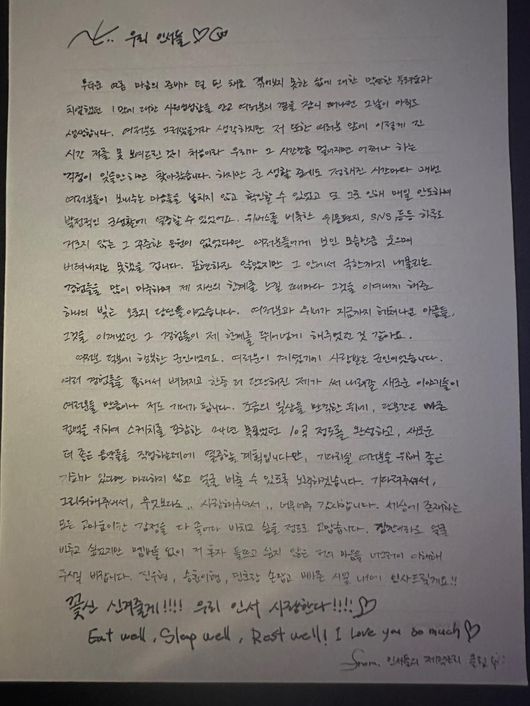 우리 인서들♡
무더운 여름 마음의 준비가 덜 된 채로 겪어보지 못한 삶에 대한 막연한 두려움과
치열했던 1막에 대한 시원섭섭함을 안고 여러분의 곁을 잠시 떠나던 그날이 아직도
생생합니다. 여러분도 그러셨을거라 생각하지만 저 또한 여러분 앞에 이렇게 긴
시간 저를 못 보여드린 것이 처음이라 우리가 그 시간만큼 멀어지면 어쩌나 하는
걱정이 잊을만하면 찾아왔습니다. 하지만 군 생활 중에도 정해진 시간마다 매번
여러분들이 보내주는 마음을 놓치지 않고 확인할 수 있었고 또 그로 인해 매일 안도하며
발전적인 군생활에 열중할 수 있었어요. 위버스를 비롯한 위문편지, SNS 등등 하루도
거르지 않는 그 꾸준한 응원이 없었다면 여러분들에게 보인 모습만큼 웃으며
버텨내지는 못했을 겁니다. 표현하진 않았지만 그 안에서 극한까지 내몰리는
경험들을 많이 마주하며 제 자신의 한계를 느낄 때마다 그것을 이겨내게 해준
하나의 빛은 오로지 당신들이었습니다. 여러분과 우리가 지금까지 헤쳐나온 아픔들,
그것들을 이겨냈던 그 경험들이 제 한계를 뛰어넘게 해주었던 것 같아요.
여러분 덕분에 행복한 군인이었어요. 여러분이 계셨기에 사랑받는 군인이었습니다.
여러 경험들을 통해서 배워지고 한층 더 단단해진 제가 써 내려갈 새로운 이야기들이
여러분들 만큼이나 저도 기대가 됩니다. 조금의 일상을 만끽한 뒤에, 단시간은 빠른
컴백을 위하여 스케치를 포함한 24년 목표였던 10곡 정도를 완성하고, 새로운
더 좋은 음악들을 작업하는데에 열중할 계획입니다만, 기다리실 여러분을 위해 좋은
기회가 있다면 마다하지 않고 얼굴 비출 수 있도록 노력하겠습니다. 기다려주셔서,
그리워해주셔서, 무엇보다도.. 사랑해주셔서.. 너무너무 감사합니다. 세상에 존재하는
모든 고마움이란 감정을 다 끌어다 바치고 싶을 정도로 고맙습니다. 얼굴
비추고 싶었지만 멤버들 없이 저 혼자 들뜨고 싶지 않은 저의 마음을 너그러이 이해해
주시길 바랍니다. 진우형, 승훈이형, 민호랑 손잡고 빠른 시일 내에 인사드릴게요!!
꽃신 신겨줄게!!!! 우리 인서 사랑한다!!!!♡
Eat well, Sleep well, Rest well! I love you so much♡
from. 인서들의